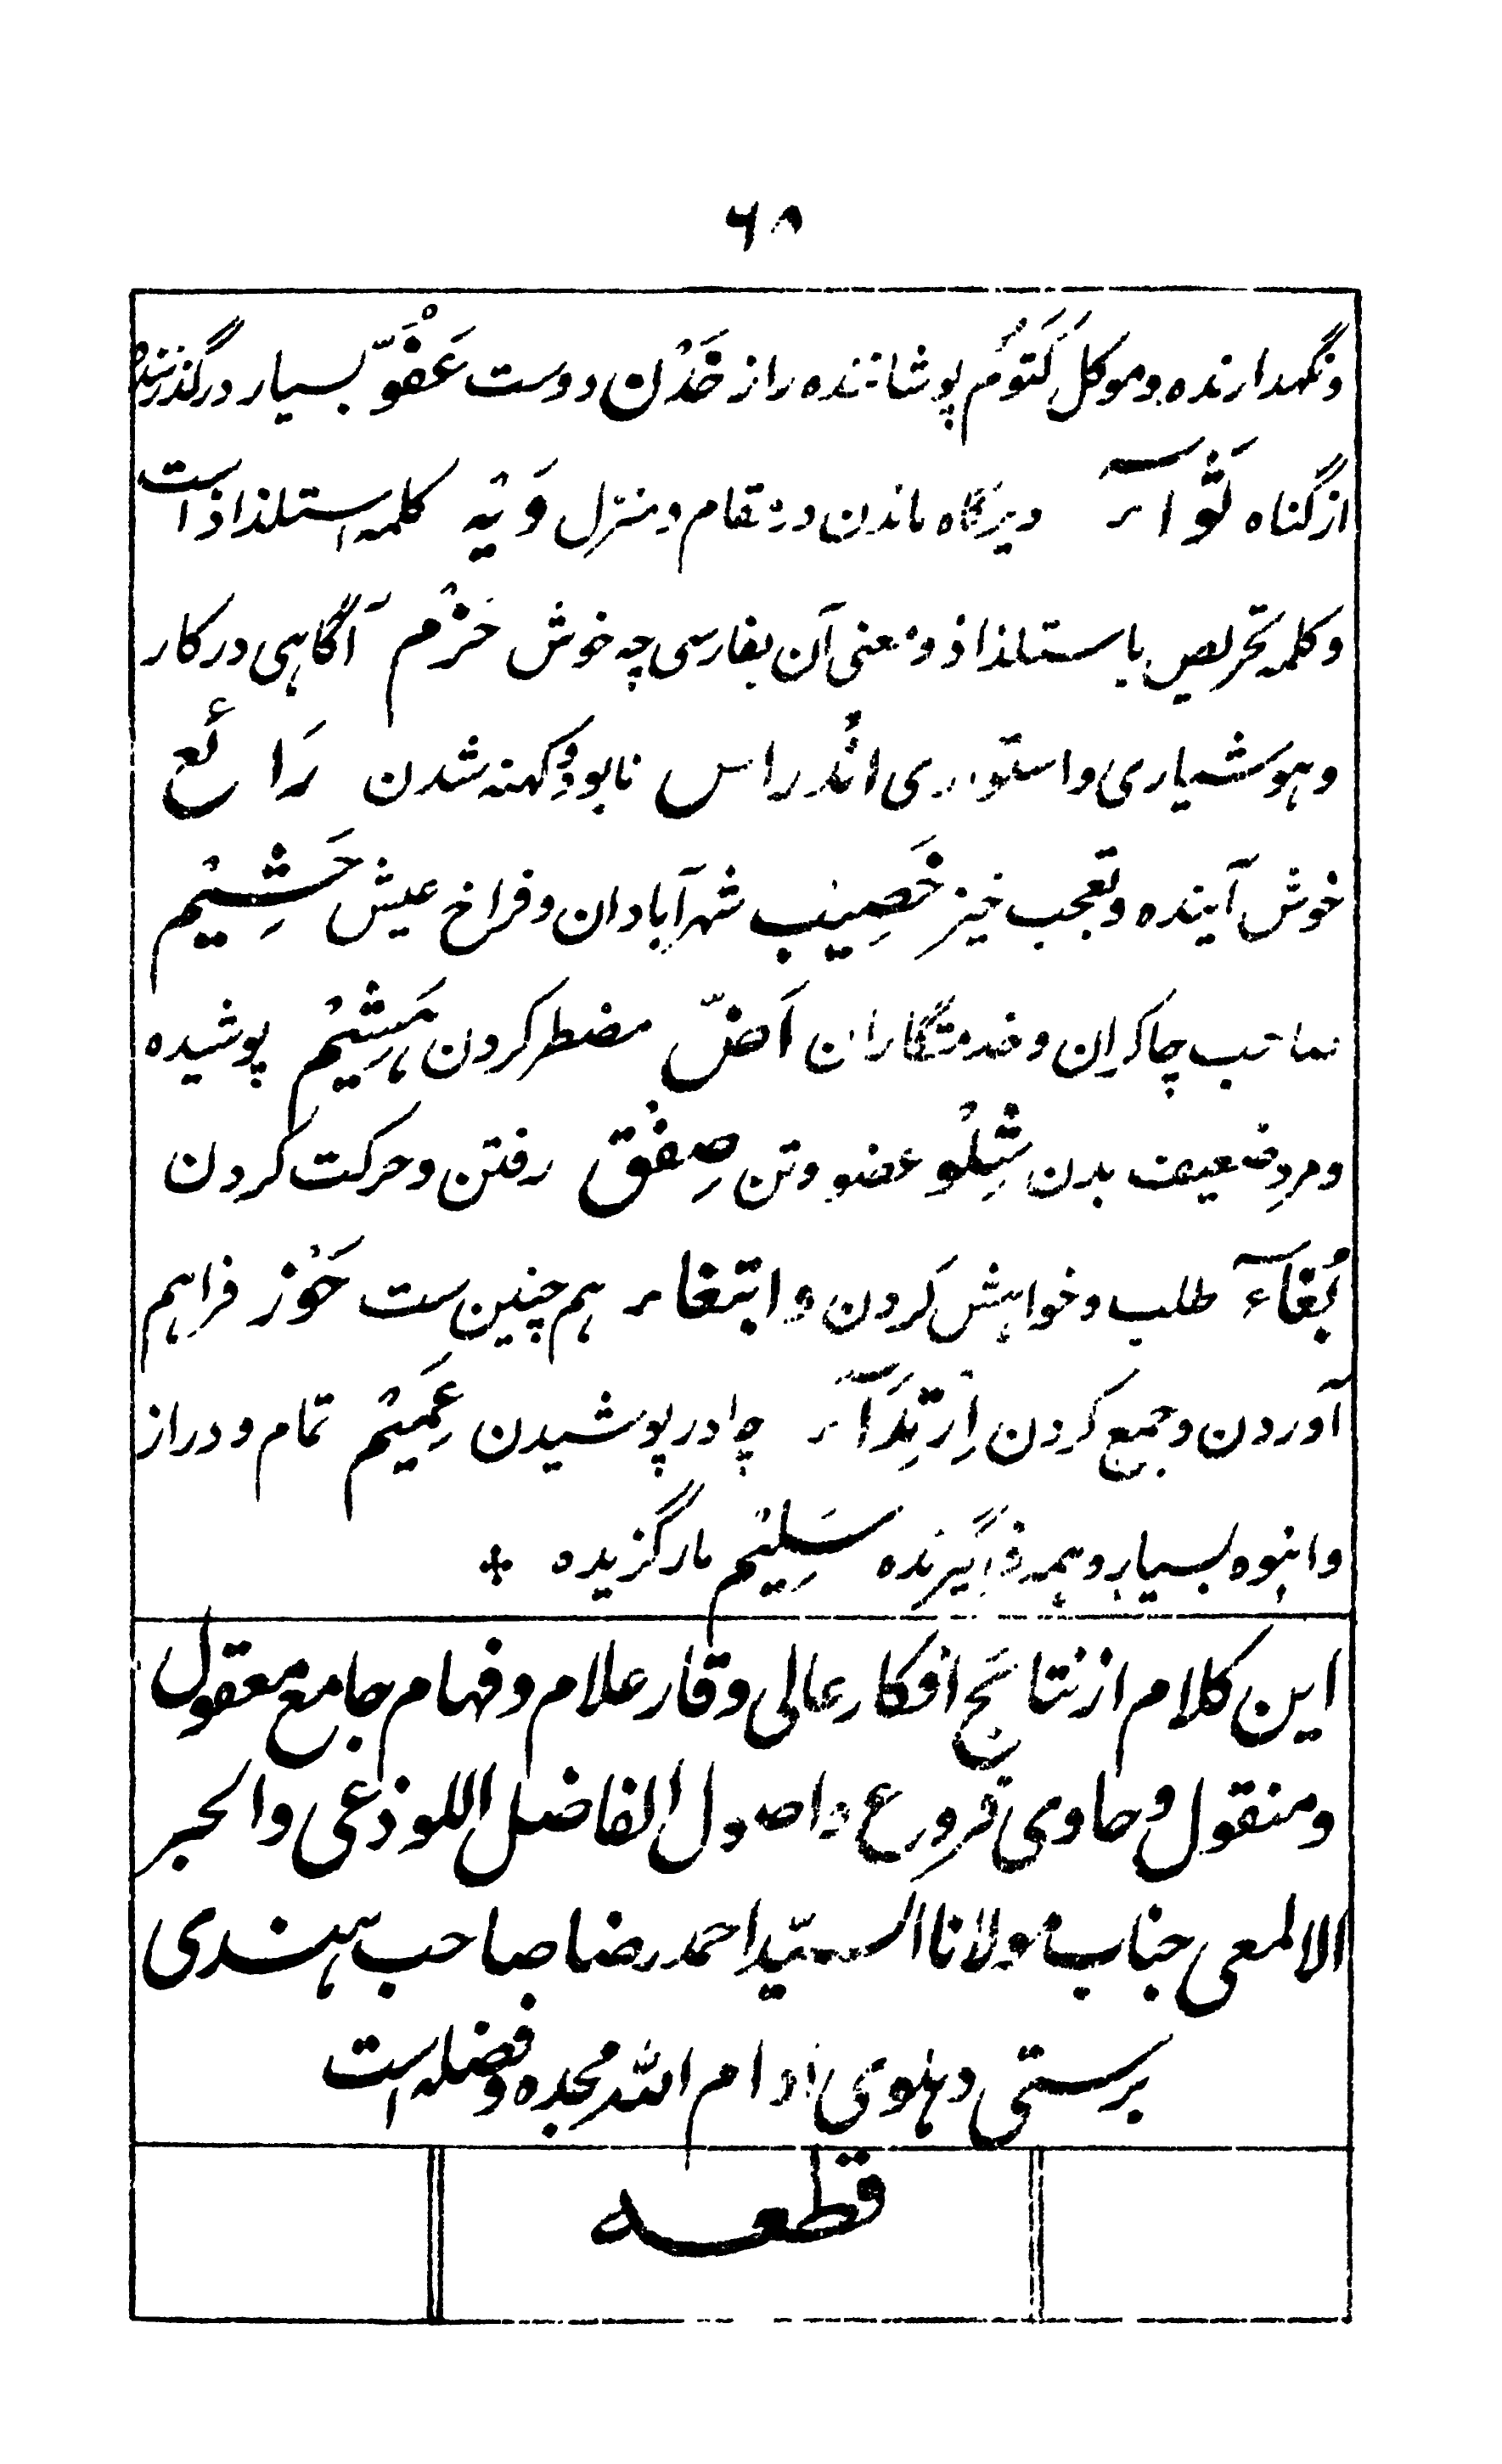 ۶۸
ونگهدارنده وموکل کَتُوم پوشاننده راز خَدْن دوست عَفْوّ بسیار درگذرنده
از گناه ثَوآء دیرگاه ماندن در مقام ومنزل وَیْه کلمه استلذاذ است
وکلمه تحریص باستلذاذ ومعنی آن بفارسی چه خوش حَزْم آگاهی در کار
وهوشیاری واستواری اندراس نابود وکهنه شدن رَائع
خوش آینده وتعجب خیز خَصِیْب شهر آبادان وفراخ عیش حَشِیْم
صاحب چاکران وخدمتگاران اَضّ مضطر کردن هَشِیْم پوشیده
ومردضعیف بدن شِلْو عضو وتن صِفْق رفتن وحرکت کردن
بُغآء طلب وخواهش کردن وابتغاء هم چنین ست حَوْز فراهم
آوردن وجمع کردن اِرْتِدَآء چادر پوشیدن عَمِیْم تمام ودراز
وانبوه بسیار وهمه فراگیرنده سَلِیْم مارگزیده *
این کلام از نتائج افکار عالی وقار علام وفهام جامع معقول
ومنقول وحاوی فروع واصول الفاضل اللوذعی والحبر
الالمعی جناب مولانا السیّد احمد رضا صاحب هندی
برستی دهلوی ادام الله مجده وفضله است
قطعه